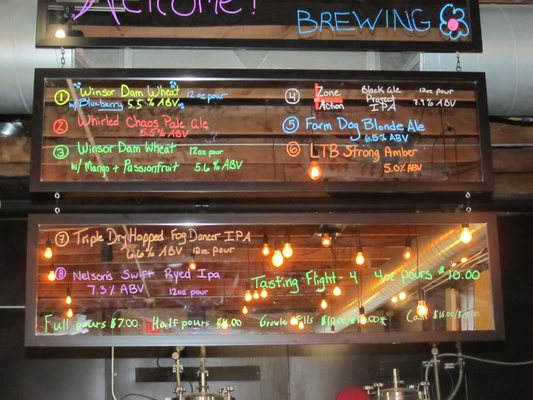 Welcome!
BREWING
① Winsor Dam Wheat 12 oz pour
w/ Blueberry 5.5% ABV
② Whirled Chaos Pale Ale
5.5% ABV
③ Winsor Dam Wheat 12oz pour
w/ Mango + Passionfruit 5.6% ABV
④ Zone Black Ale 12oz pour
Action Project 7.1% ABV
IPA
⑤ Farm Dog Blonde Ale
6.5% ABV
⑥ LTB Strong Amber
5.0% ABV
⑦ Triple Dry Hopped Fog Dancer IPA
6.6% ABV 12oz pour
⑧ Nelson's Swift Ryed Ipa
7.3% ABV 12oz pour
Tasting Flight - 4 4oz pours $10.00
Full pours $7.00 Half pours $4.00 Growler fills